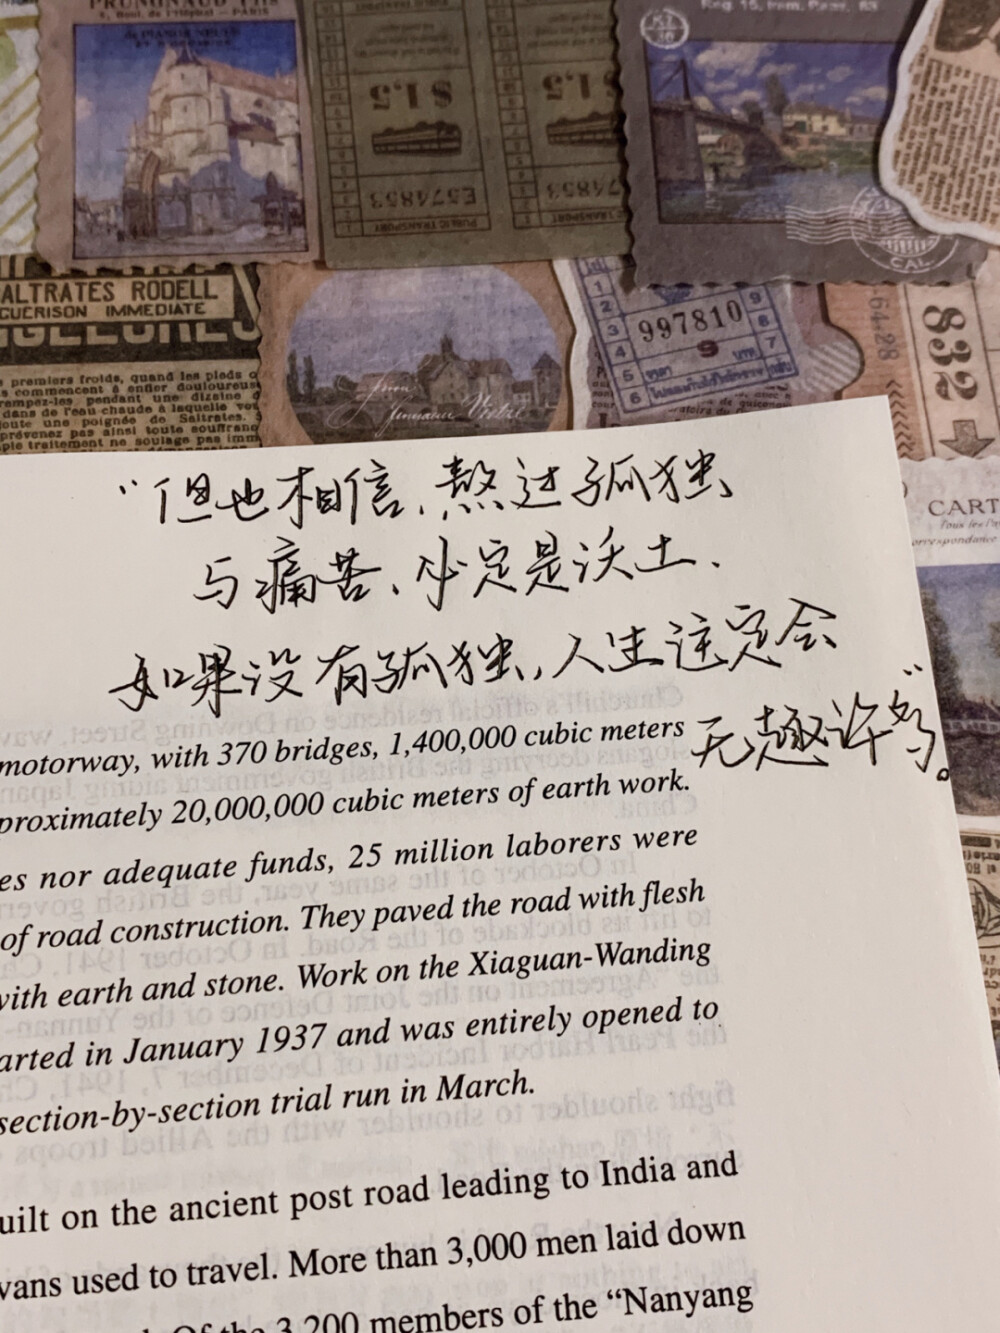 PRUNGNAUD FILS
5, Boul. de l'Hôpital — PARIS
$1,5
$1,5
E574853
PUBLIC TRANSPORT
Reg. 15, Imm. Pearl, 83
CAL.
ALTRATES RODELL
GUERISON IMMEDIATE
premiers froids, quand les pieds
commencent à enfler douloureus
rempez-les pendant une dizaine
dans de l'eau chaude à laquelle vo
joute une poignée de Saltrates.
prévenez pas ainsi toute souffran
ple traitement ne soulage pas imm
997810
9
832
CART
orrespondance
“但也相信，熬过孤独
与痛苦，必定是沃土，
如果没有孤独，人生注定会
无趣许多”。
motorway, with 370 bridges, 1,400,000 cubic meters
proximately 20,000,000 cubic meters of earth work.
es nor adequate funds, 25 million laborers were
of road construction. They paved the road with flesh
with earth and stone. Work on the Xiaguan-Wanding
arted in January 1937 and was entirely opened to
section-by-section trial run in March.
uilt on the ancient post road leading to India and
vans used to travel. More than 3,000 men laid down
Of the 3,200 members of the “Nanyang